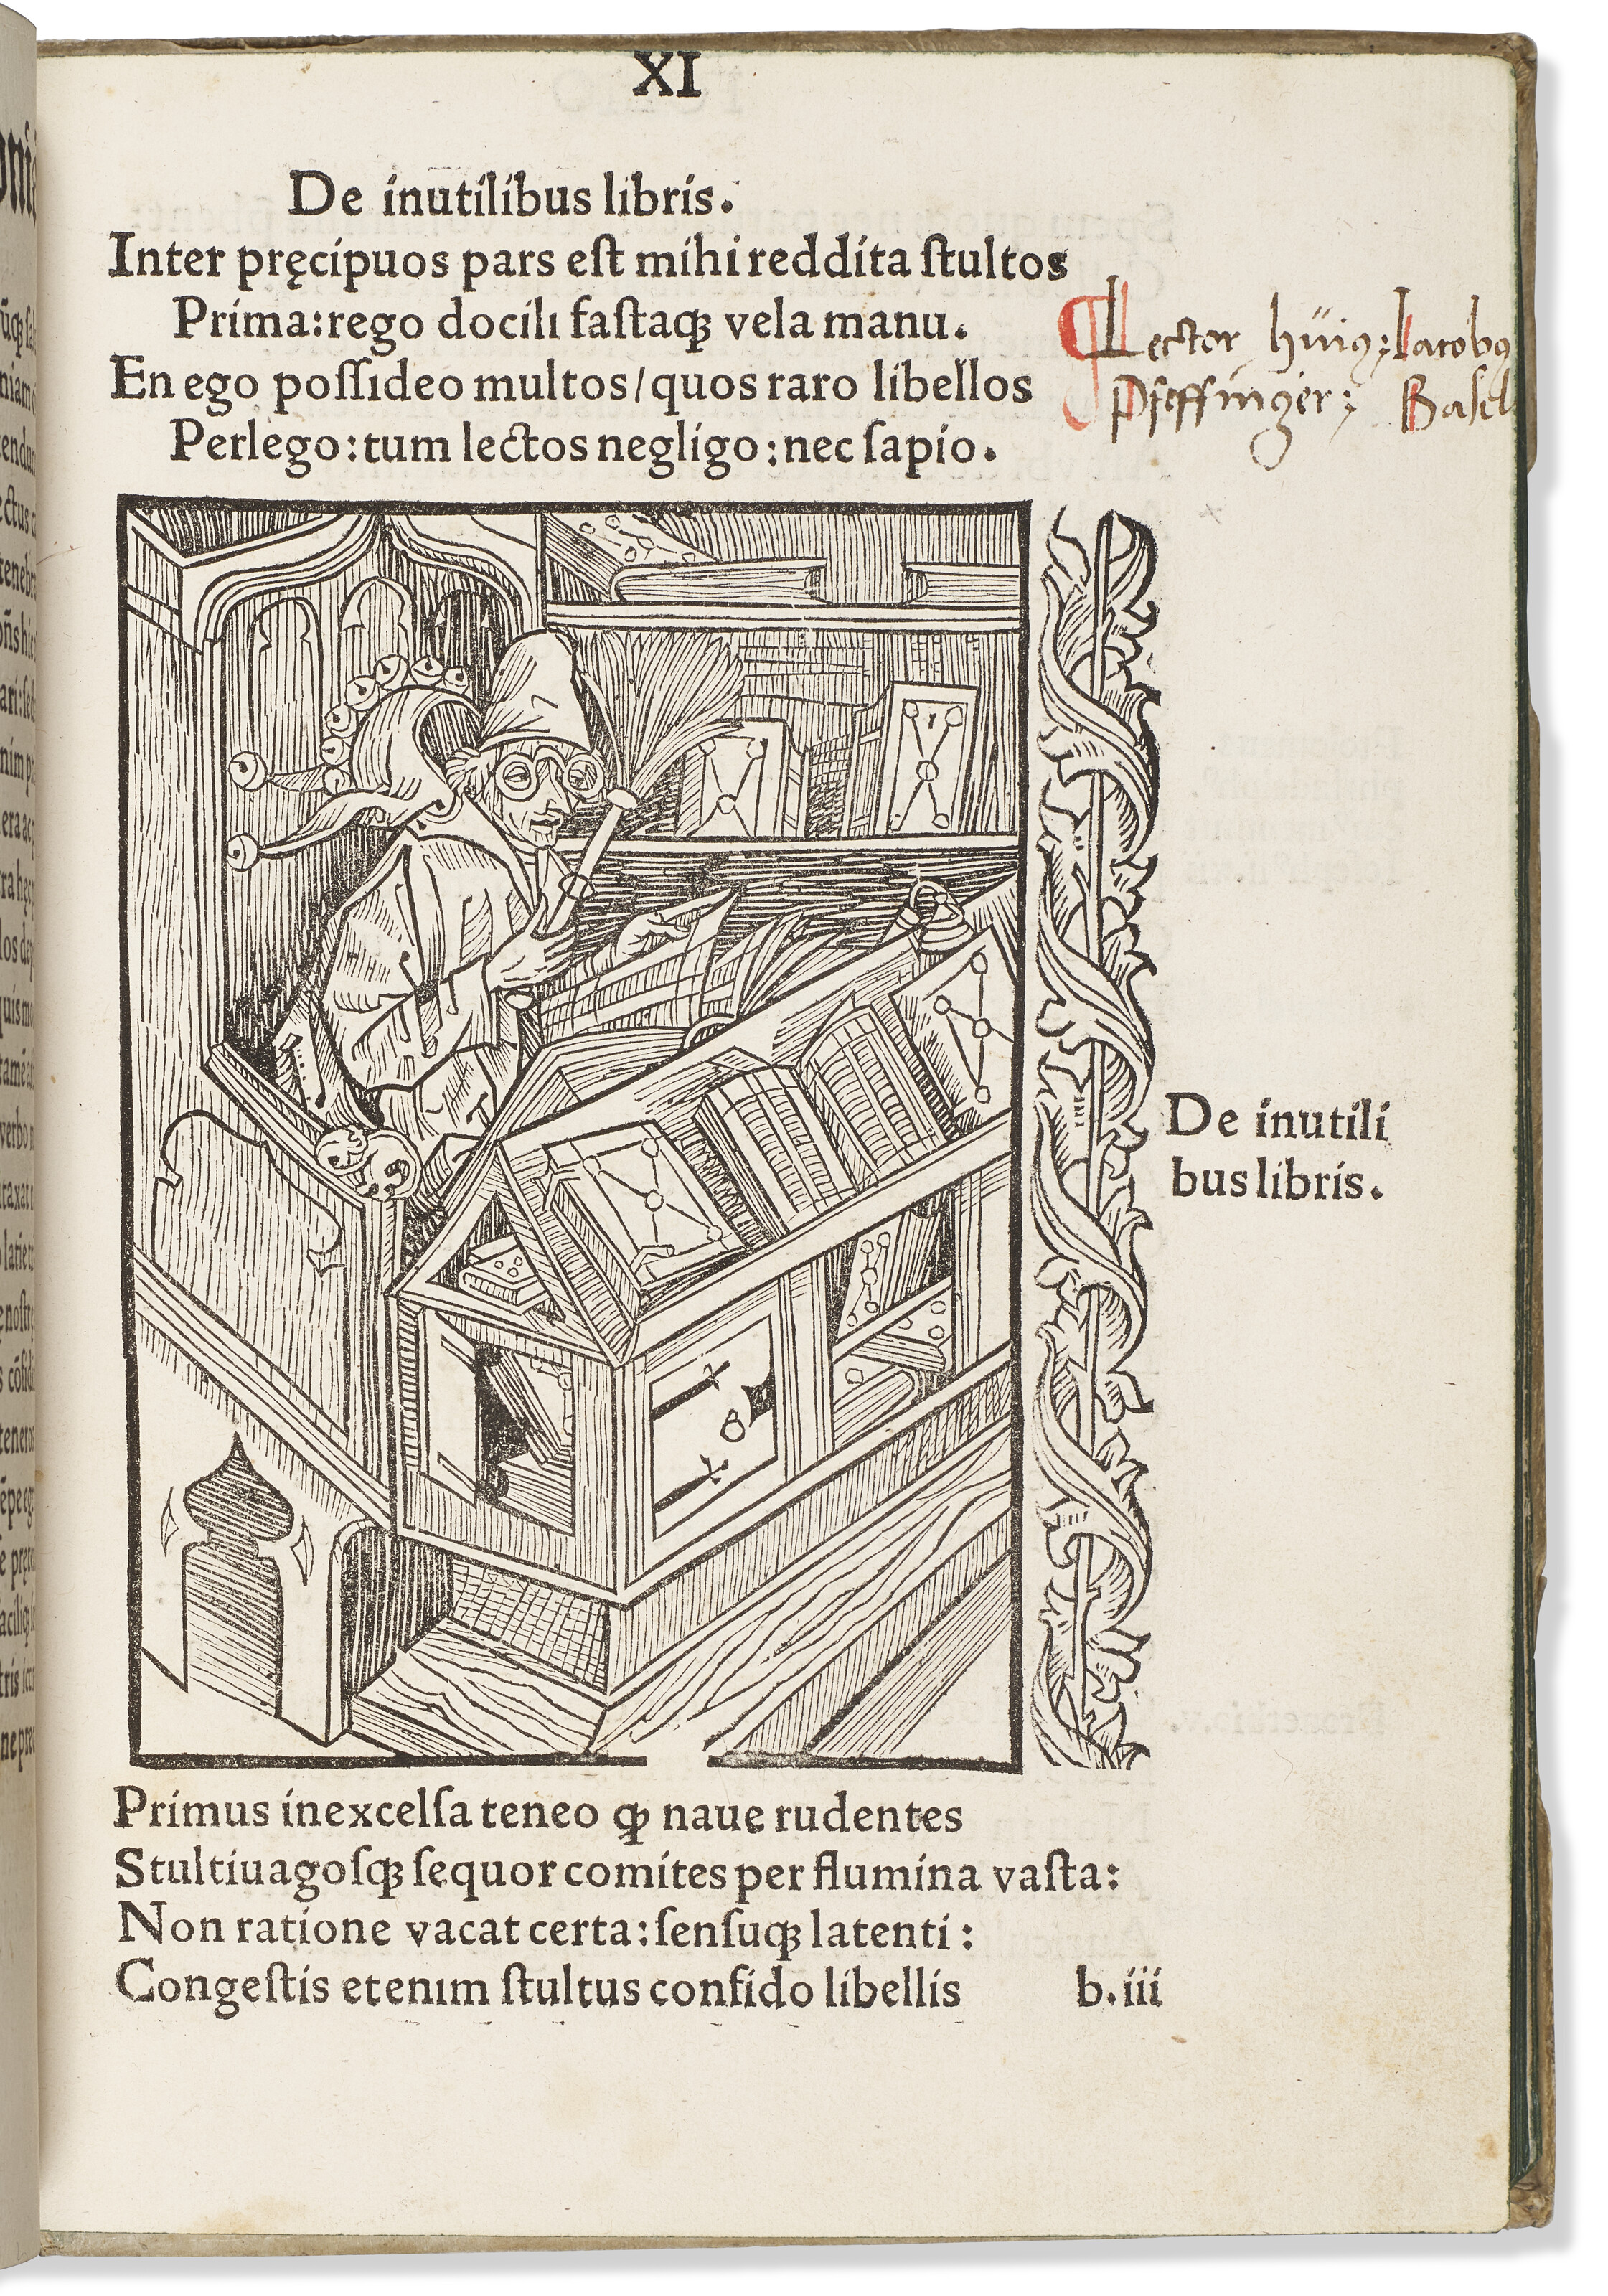 XI
De inutilibus libris.
Inter pręcipuos pars eſt mihi reddita ſtultos
Prima: rego docili faſtaqꝫ vela manu.
En ego poſſideo multos/quos raro libellos
Perlego: tum lectos negligo: nec ſapio.
Lector huiꝰ; Iacobꝰ
Pfeffinger; Basel
De inutili
bus libris.
Primus in excelſa teneo ꝙ naue rudentes
Stultiuagoſqꝫ ſequor comites per flumina vaſta:
Non ratione vacat certa: ſenſuqꝫ latenti:
Congeſtis etenim ſtultus confido libellis
b.iii